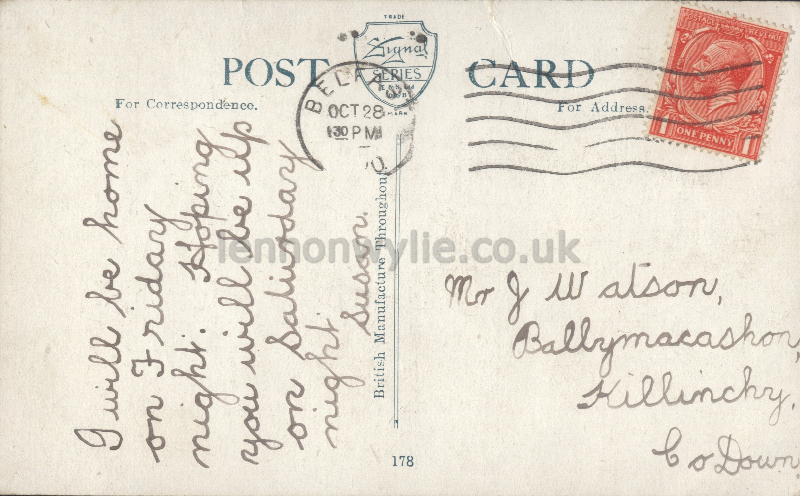 TRADE
Signal
SERIES
MARK
POST CARD
For Correspondence.
For Address.
BELFAST
OCT 28
130 PM
POSTAGE REVENUE
1 ONE PENNY 1
I will be home
on Friday
night. Hoping
you will be up
on Saturday
night
Susan.
British Manufacture Throughout
178
Mr J Watson,
Ballymacashon,
Killinchy,
Co Down
lennonwylie.co.uk